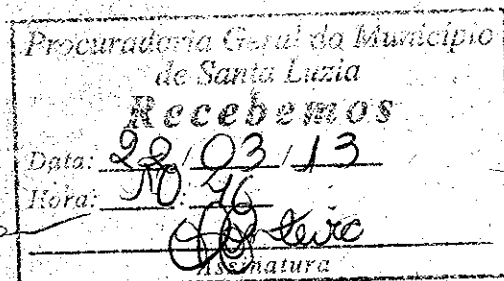 Procuradoria Geral do Município
de Santa Luzia
Recebemos
Data: 22/03/13
Hora: 10:46
Assinatura